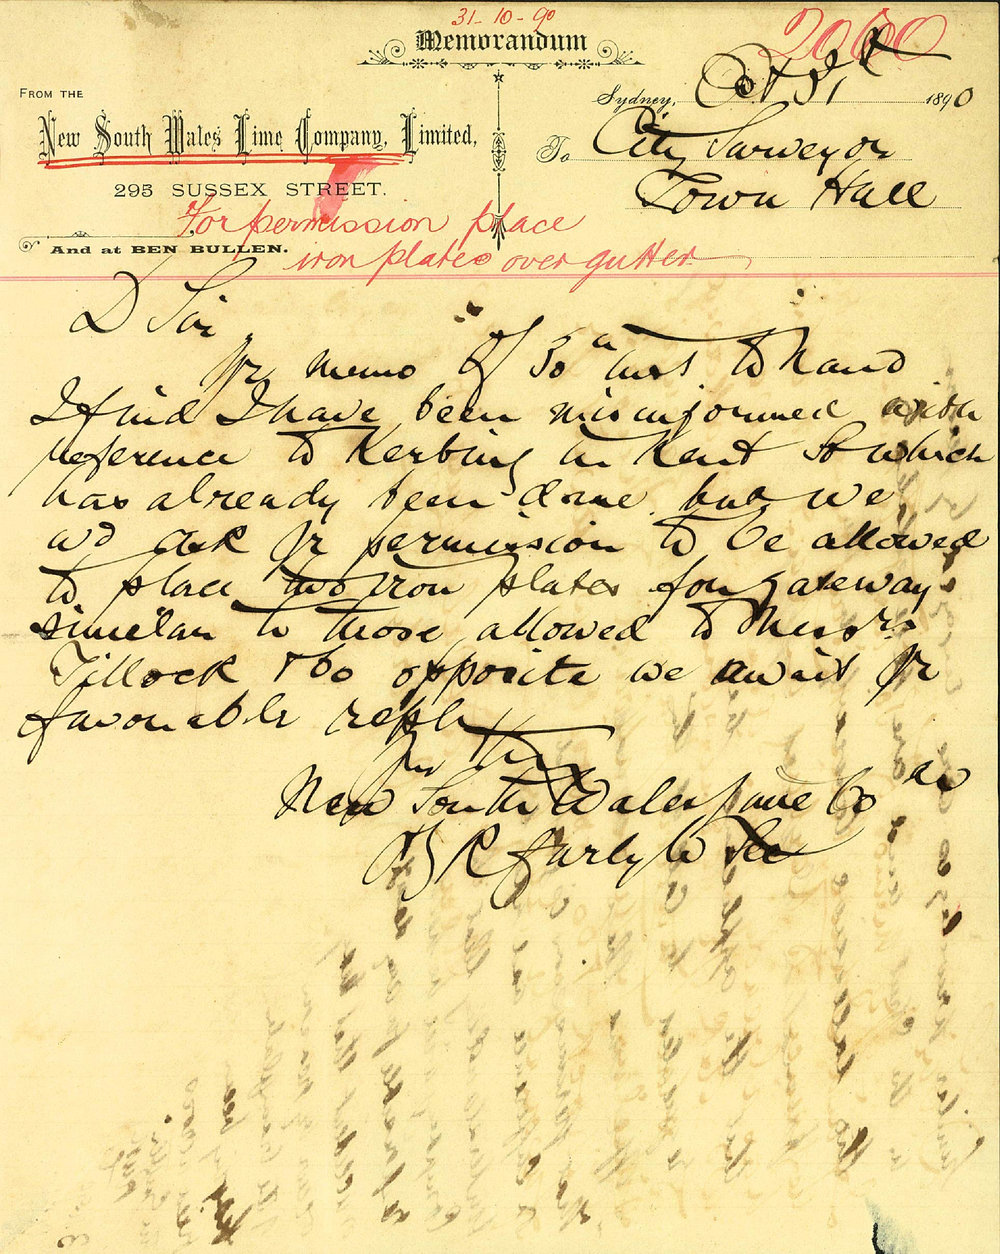 31-10-90
2060
Memorandum
FROM THE
New South Wales Lime Company, Limited,
295 SUSSEX STREET.
And at BEN BULLEN.
Sydney, Oct 31st 1890
To City Surveyor
Town Hall
For permission place
iron plates over gutter
D Sir
Yr memo of 30th inst to hand
I find I have been misinformed with
reference to Kerbing in Kent St which
has already been done. but we
wd ask yr permission to be allowed
to place two iron plates for gateway
similar to those allowed to Messrs
Tillock & Co opposite we await yr
favorable reply
New South Wales Lime Co
Sec